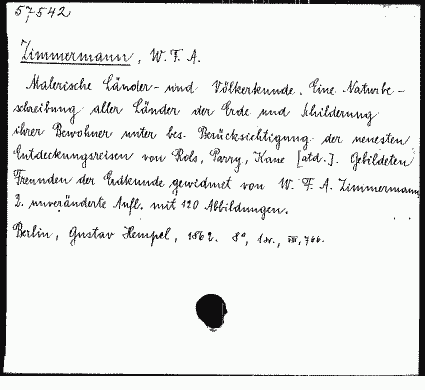 57542
Zimmermann, W. F. A.
Malerische Länder- und Völkerkunde. Eine Naturbe-
schreibung aller Länder der Erde und Schilderung
ihrer Bewohner unter bes. Berücksichtigung der neuesten
Entdeckungsreisen von Rols, Parry, Kane [atd.]. Gebildeten
Freunden der Erdkunde gewidmet von W. F. A. Zimmermann
2. unveränderte Aufl. mit 120 Abbildungen.
Berlin, Gustav Hempel, 1862. 8°, 1 sv., VIII, 766.